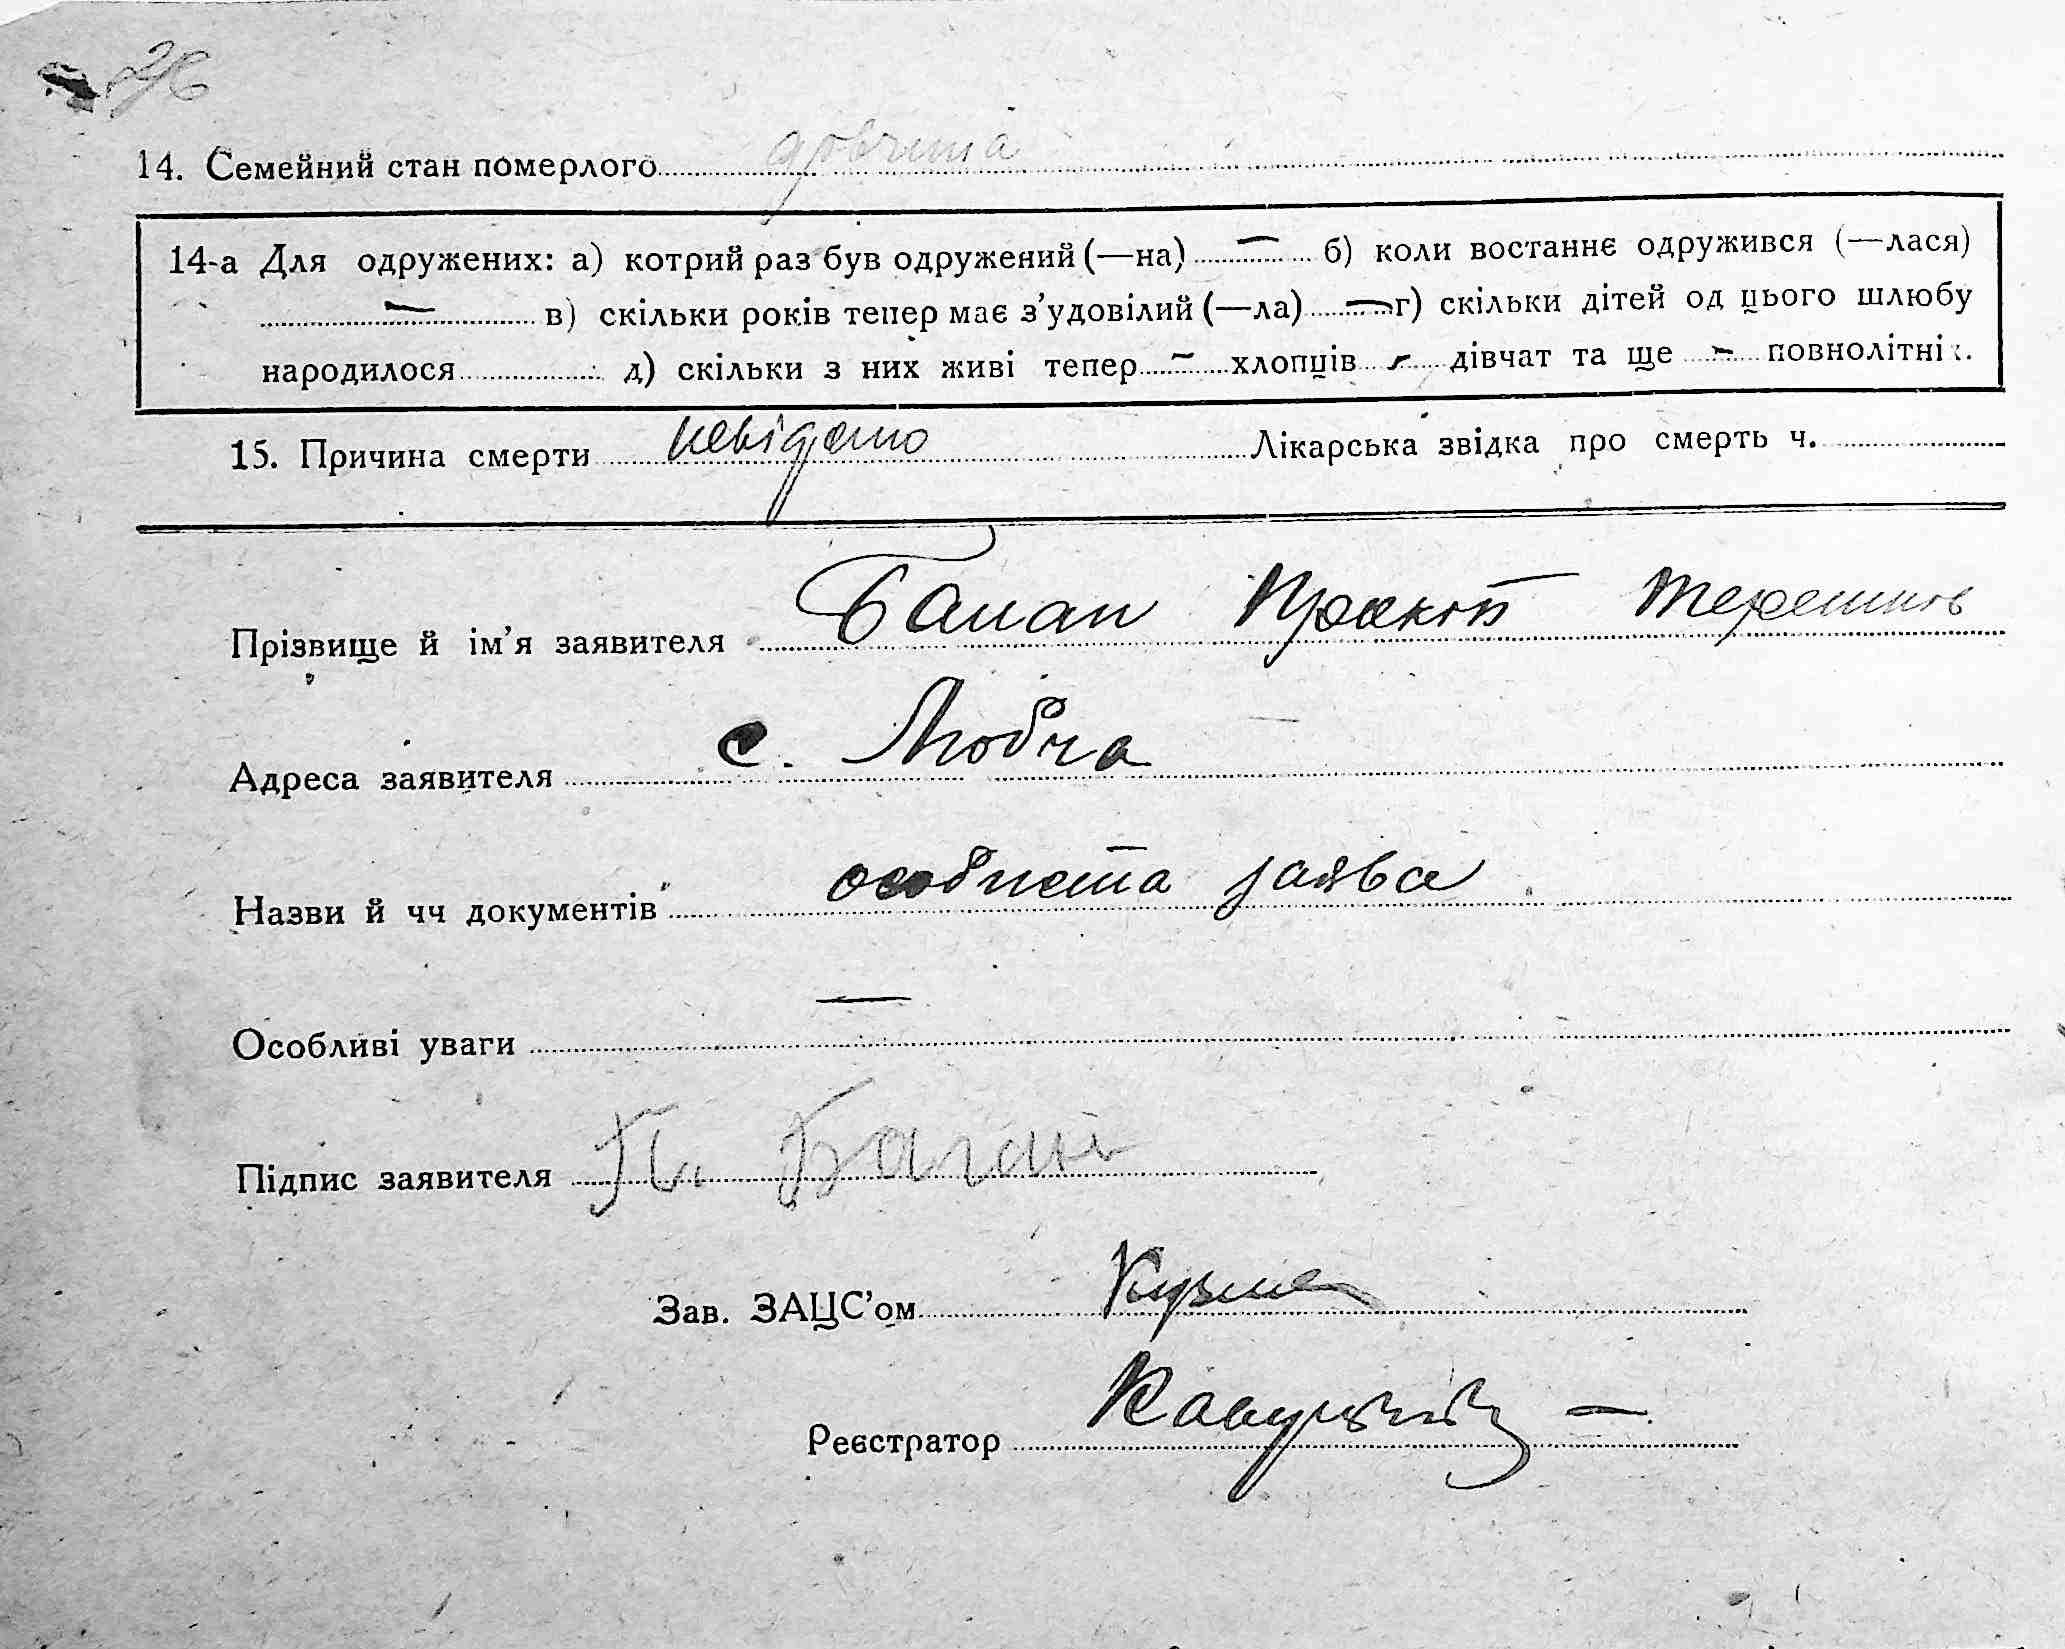 26
14. Семейний стан померлого дівчина
14-а Для одружених: а) котрий раз був одружений (—на) — б) коли востаннє одружився (—лася)
— в) скільки років тепер має з’удовілий (—ла) — г) скільки дітей од цього шлюбу
народилося д) скільки з них живі тепер — хлопців — дівчат та ще — повнолітніх.
15. Причина смерти невідомо Лікарська звідка про смерть ч.
Прізвище й ім’я заявителя
Адреса заявителя с. Любча
Назви й чч документів особиста заява
Особливі уваги —
Підпис заявителя П.
Зав. ЗАЦС’ом
Реєстратор